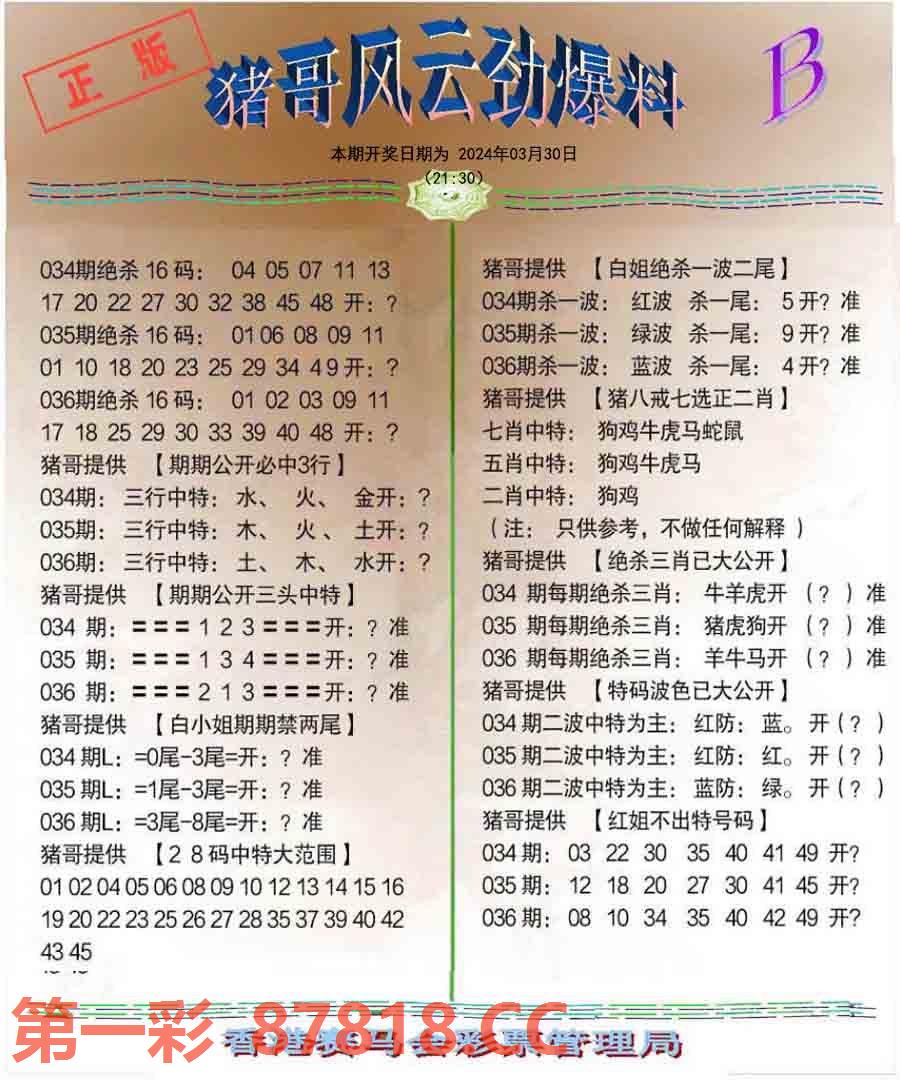 正版
猪哥风云劲爆料
B
本期开奖日期为 2024年03月30日
(21:30)
034期绝杀16码： 04 05 07 11 13
17 20 22 27 30 32 38 45 48 开：?
035期绝杀16码： 01 06 08 09 11
01 10 18 20 23 25 29 34 49 开：?
036期绝杀16码： 01 02 03 09 11
17 18 25 29 30 33 39 40 48 开：?
猪哥提供 【期期公开必中3行】
034期：三行中特：水、 火、 金开：?
035期：三行中特：木、 火、 土开：?
036期：三行中特：土、 木、 水开：?
猪哥提供 【期期公开三头中特】
034 期：===123===开：? 准
035 期：===134===开：? 准
036 期：===213===开：? 准
猪哥提供 【白小姐期期禁两尾】
034期L：=0尾-3尾=开：? 准
035期L：=1尾-3尾=开：? 准
036期L：=3尾-8尾=开：? 准
猪哥提供 【28码中特大范围】
01 02 04 05 06 08 09 10 12 13 14 15 16
19 20 22 23 25 26 27 28 35 37 39 40 42
43 45
猪哥提供 【白姐绝杀一波二尾】
034期杀一波： 红波 杀一尾： 5开? 准
035期杀一波： 绿波 杀一尾： 9开? 准
036期杀一波： 蓝波 杀一尾： 4开? 准
猪哥提供 【猪八戒七选正二肖】
七肖中特： 狗鸡牛虎马蛇鼠
五肖中特： 狗鸡牛虎马
二肖中特： 狗鸡
（注： 只供参考，不做任何解释）
猪哥提供 【绝杀三肖已大公开】
034 期每期绝杀三肖： 牛羊虎开 （? ）准
035 期每期绝杀三肖： 猪虎狗开 （? ）准
036 期每期绝杀三肖： 羊牛马开 （? ）准
猪哥提供 【特码波色已大公开】
034期二波中特为主： 红防：蓝。 开(? )
035期二波中特为主： 红防：红。 开(? )
036期二波中特为主： 蓝防：绿。 开(? )
猪哥提供 【红姐不出特号码】
034期： 03 22 30 35 40 41 49 开?
035期： 12 18 20 27 30 41 45 开?
036期： 08 10 34 35 40 42 49 开?
第一彩 87818.CC
香港赛马会彩票管理局